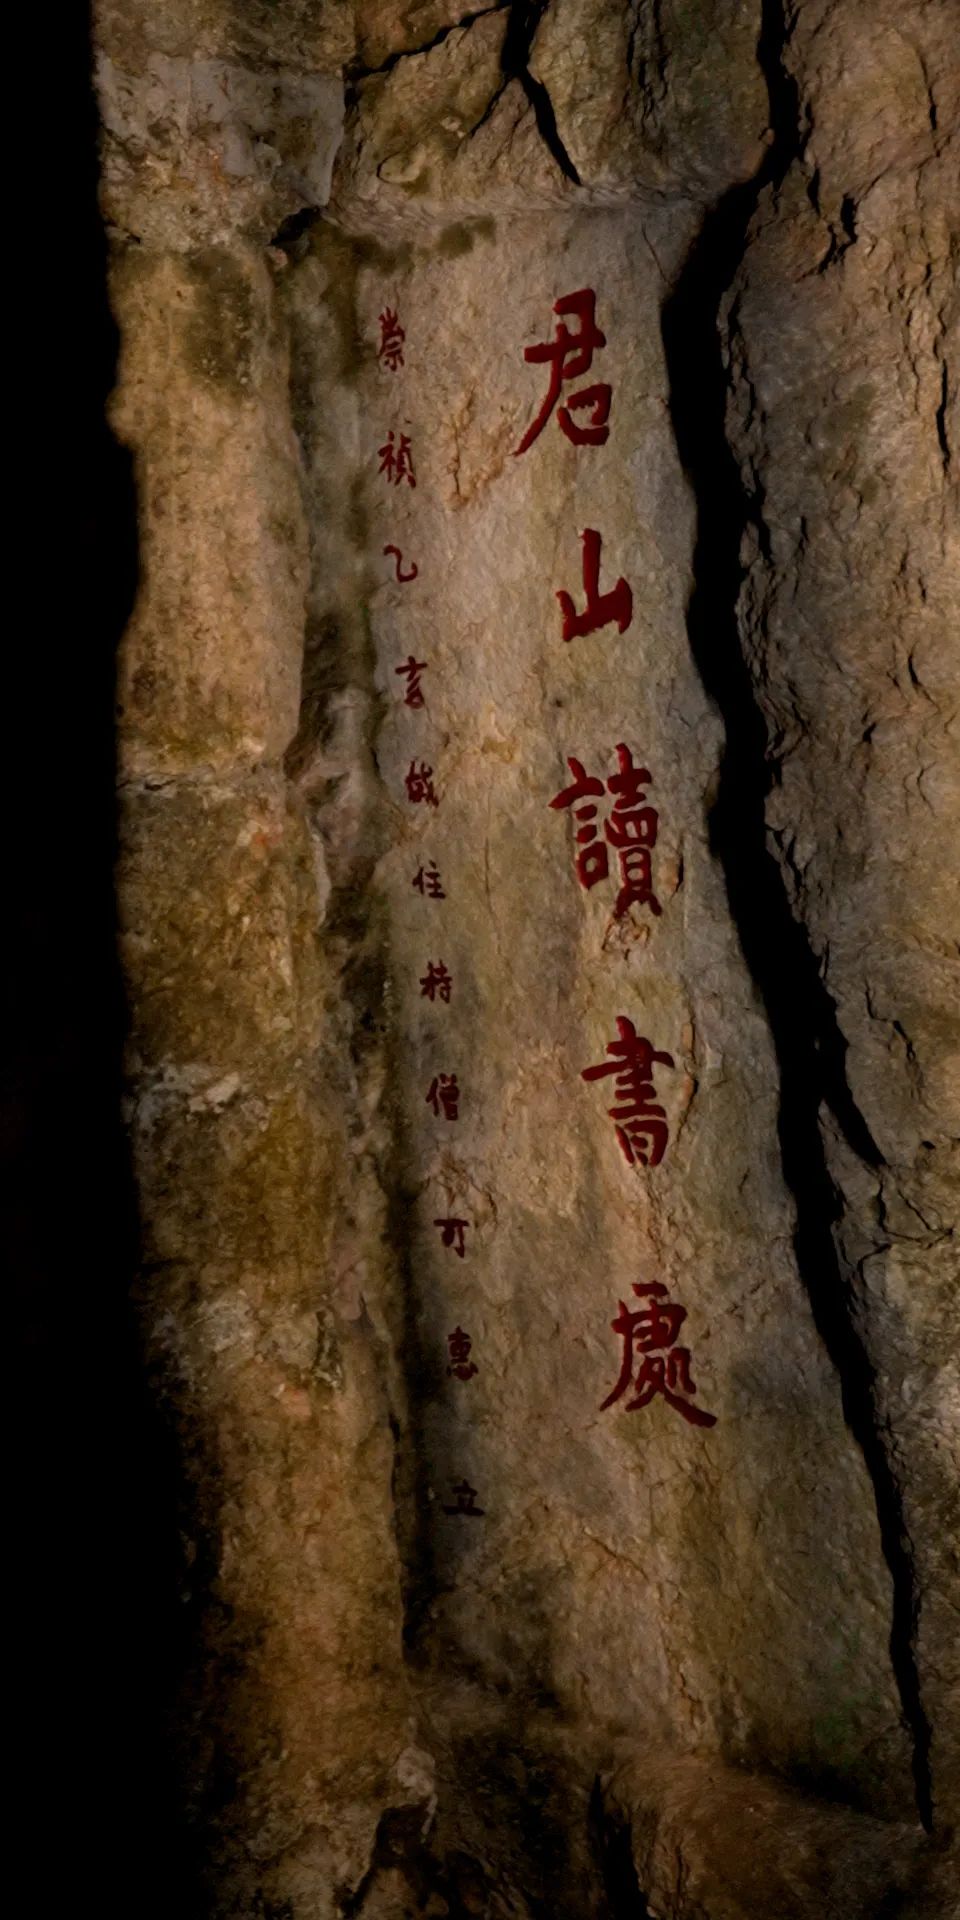 君山讀書處
崇禎乙亥歲住持僧可惠立